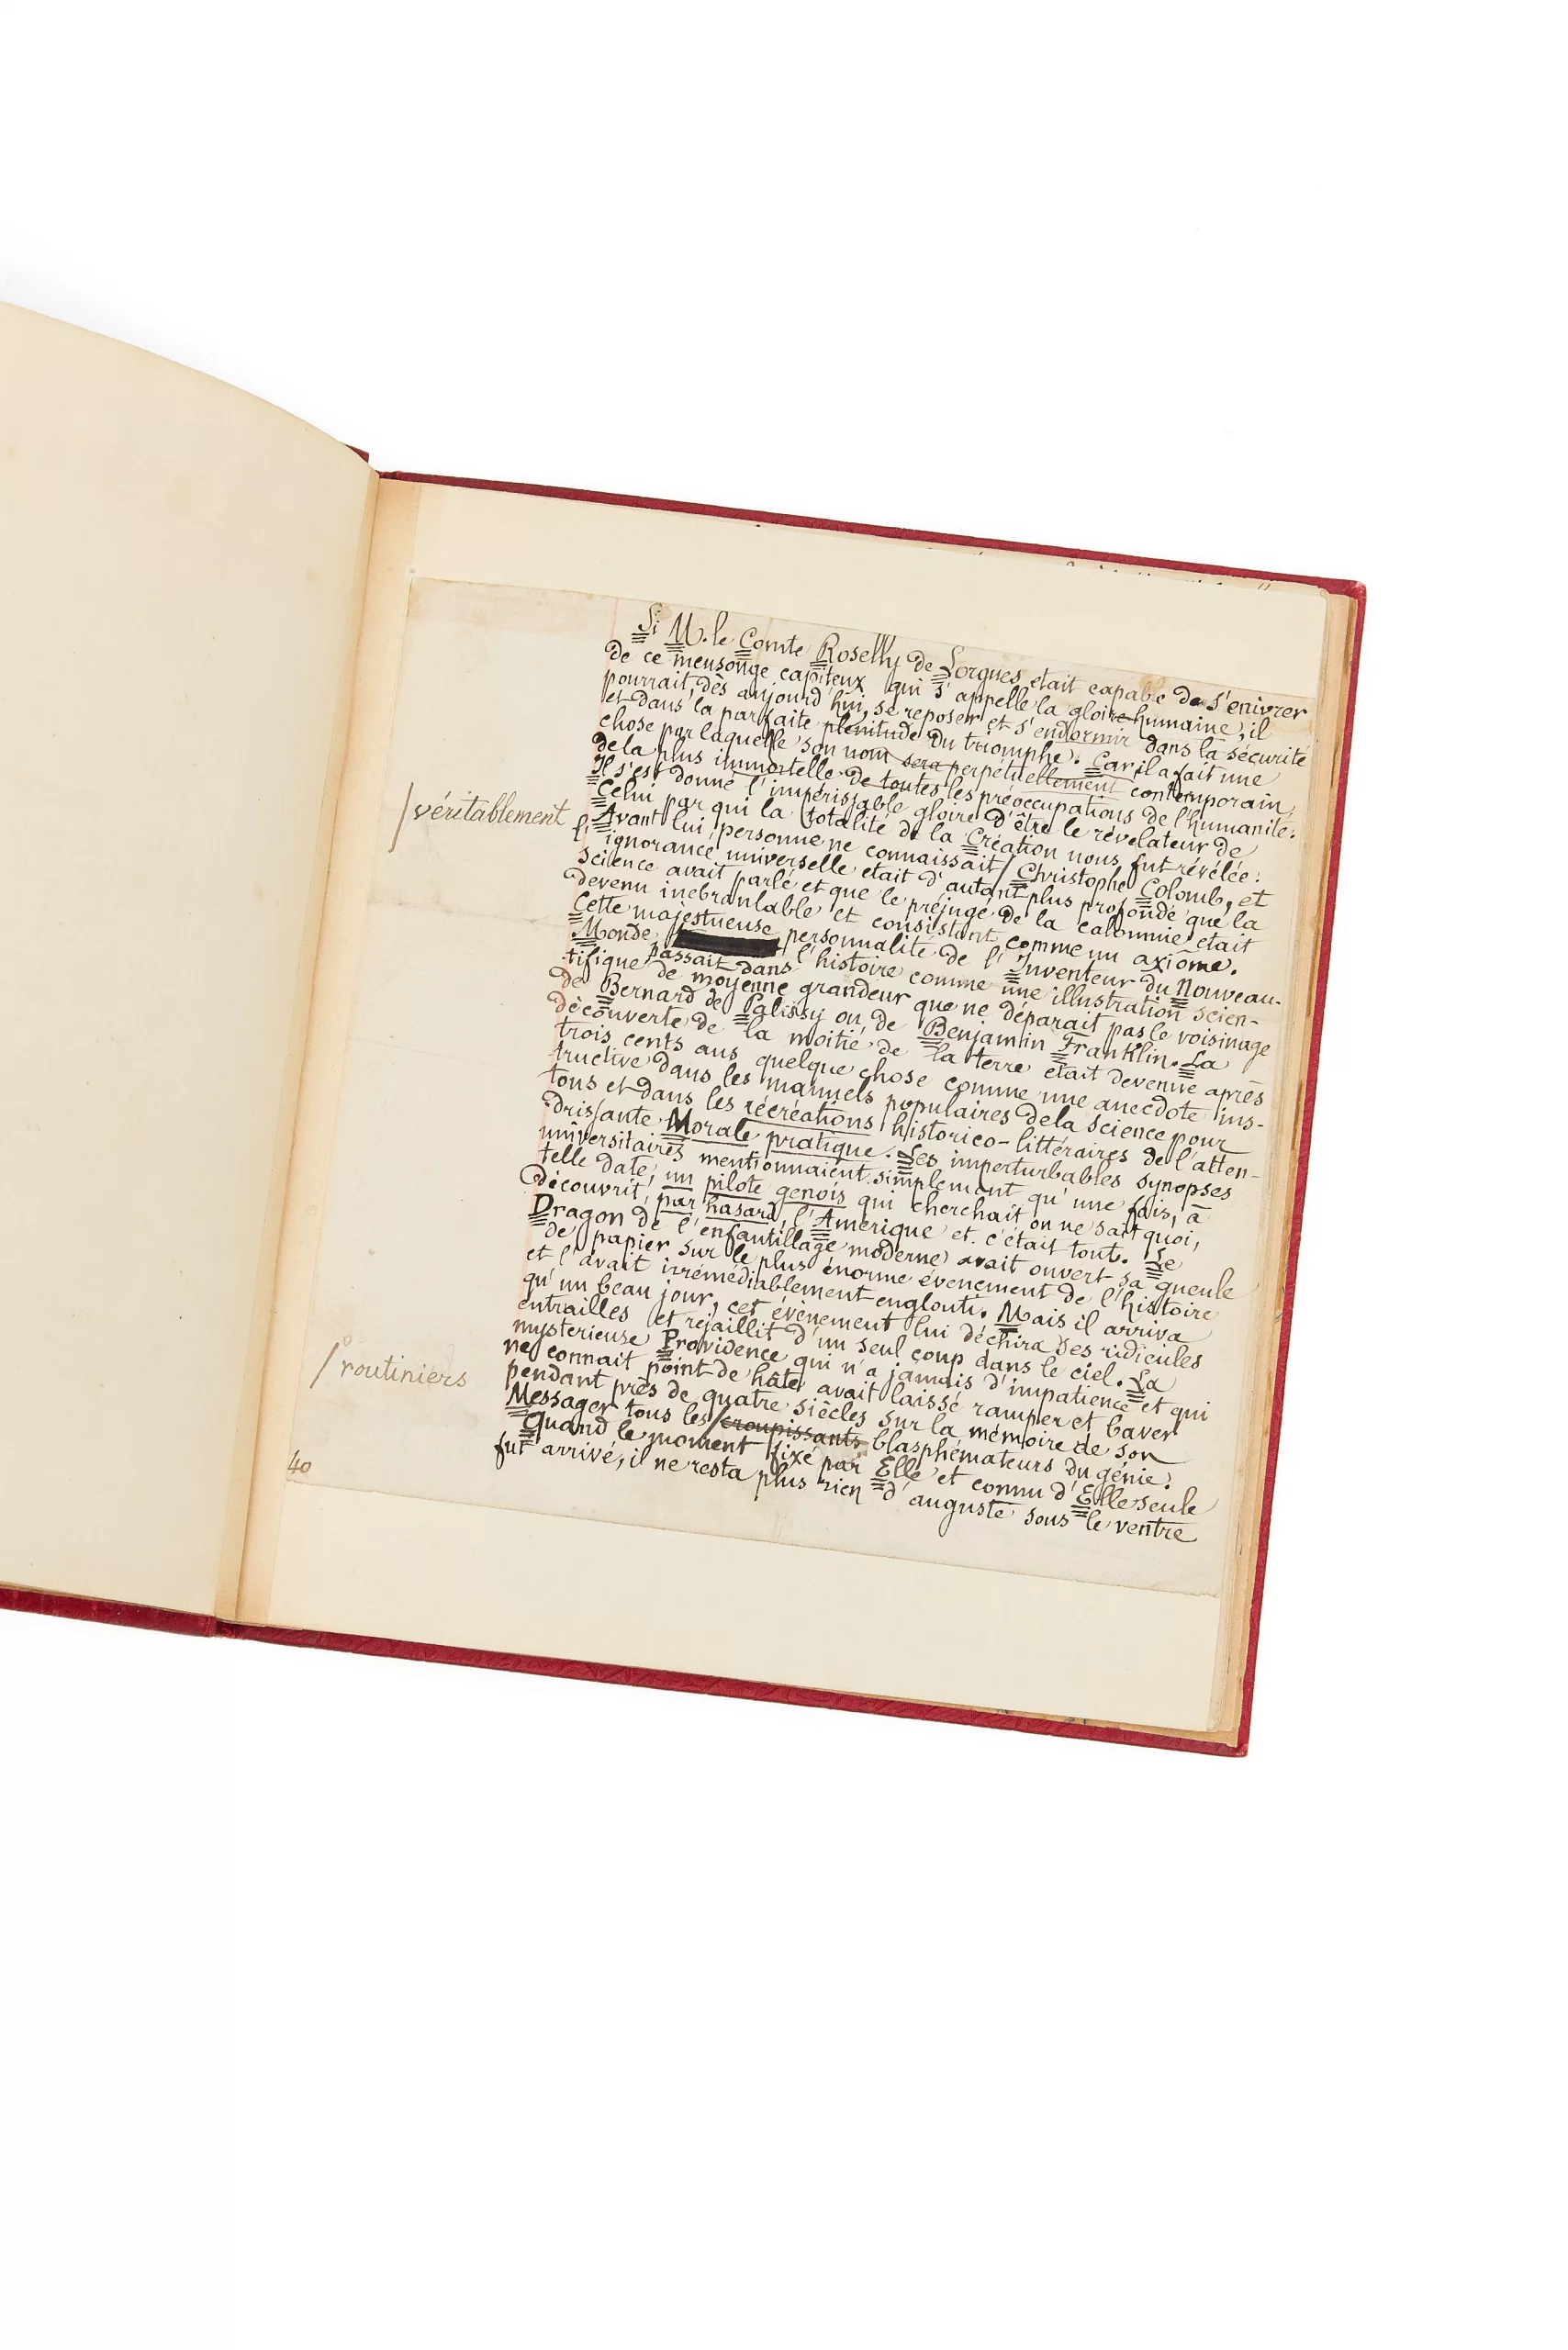 Si M. le Comte Roselly de Lorgues était capable de s'enivrer
de ce mensonge capiteux qui s'appelle la gloire humaine, il
pourrait, dès aujourd'hui, se reposer et s'endormir dans la sécurité
et dans la parfaite plénitude du triomphe. Car il a fait une
chose par laquelle son nom sera perpétuellement contemporain
de la plus immortelle de toutes les préoccupations de l'humanité.
Il s'est donné l'impérissable gloire d'être le révélateur de
Celui par qui la totalité de la Création nous fut révélée.
/ véritablement
Avant lui, personne ne connaissait / Christophe Colomb, et
l'ignorance universelle était d'autant plus profonde que la
science avait parlé et que le préjugé de la calomnie était
devenu inébranlable et consistant comme un axiôme.
Cette majestueuse personnalité de l'Inventeur du Nouveau-
Monde passait dans l'histoire comme une illustration scien-
tifique de moyenne grandeur que ne déparait pas le voisinage
de Bernard de Palissy ou de Benjamin Franklin. La
découverte de la moitié de la terre était devenue après
trois cents ans quelque chose comme une anecdote ins-
tructive dans les manuels populaires de la science pour
tous et dans les récréations historico-littéraires de l'atten-
drissante Morale pratique. Les imperturbables synopses
universitaires mentionnaient simplement qu'une fois, à
telle date, un pilote génois qui cherchait on ne sait quoi,
découvrit, par hasard, l'Amérique et c'était tout. Le
Dragon de l'enfantillage moderne avait ouvert sa gueule
de papier sur le plus énorme événement de l'histoire
et l'avait irrémédiablement englouti. Mais il arriva
qu'un beau jour, cet événement lui déchira ses ridicules
entrailles et rejaillit d'un seul coup dans le ciel. La
mystérieuse Providence qui n'a jamais d'impatience et qui
ne connait point de hâte avait laissé ramper et baver
pendant près de quatre siècles sur la mémoire de son
/ routiniers
Messager tous les / croupissants blasphémateurs du génie.
Quand le moment fixé par Elle et connu d'Elle seule
fut arrivé, il ne resta plus rien d'auguste sous le ventre
40